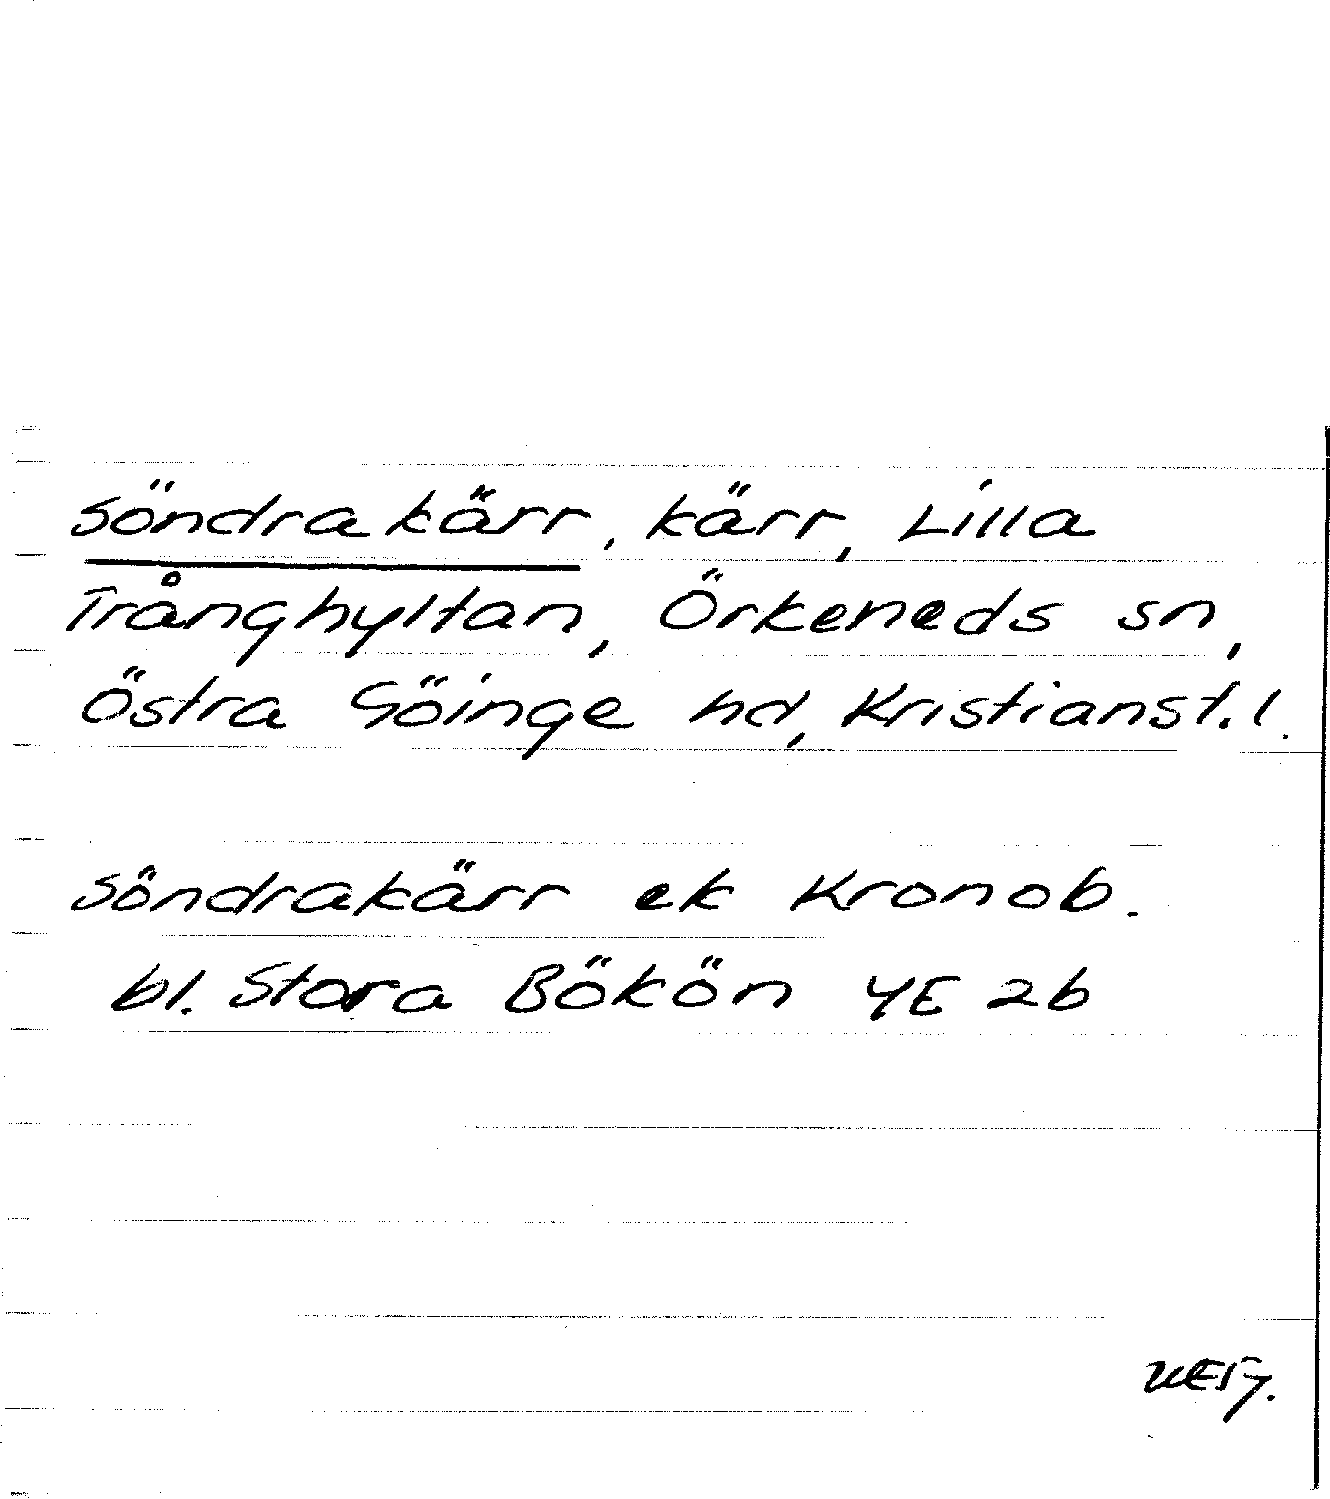 Söndrakärr, kärr, Lilla
Trånghyltan, Örkeneds sn,
Östra Göinge hd, Kristianst. l.
Söndrakärr ek Kronob.
bl. Stora Bökön 4E 2b